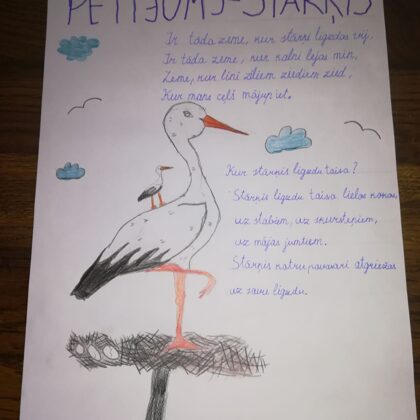 PĒTĪJUMS-STĀRĶIS
Ir tāda zeme, kur stārķi ligzdas vij,
Ir tāda zeme, kur kalni lejas min,
Zeme, kur lini ziliem ziediem zied,
Kur mans ceļš mājup iet.
Kur stārķis ligzdu taisa?
Stārķis ligzdu taisa lielos kokos,
uz stabiem, uz skursteņiem,
uz mājas jumtiem.
Stārķis katru pavasari atgriežas
uz savu ligzdu.